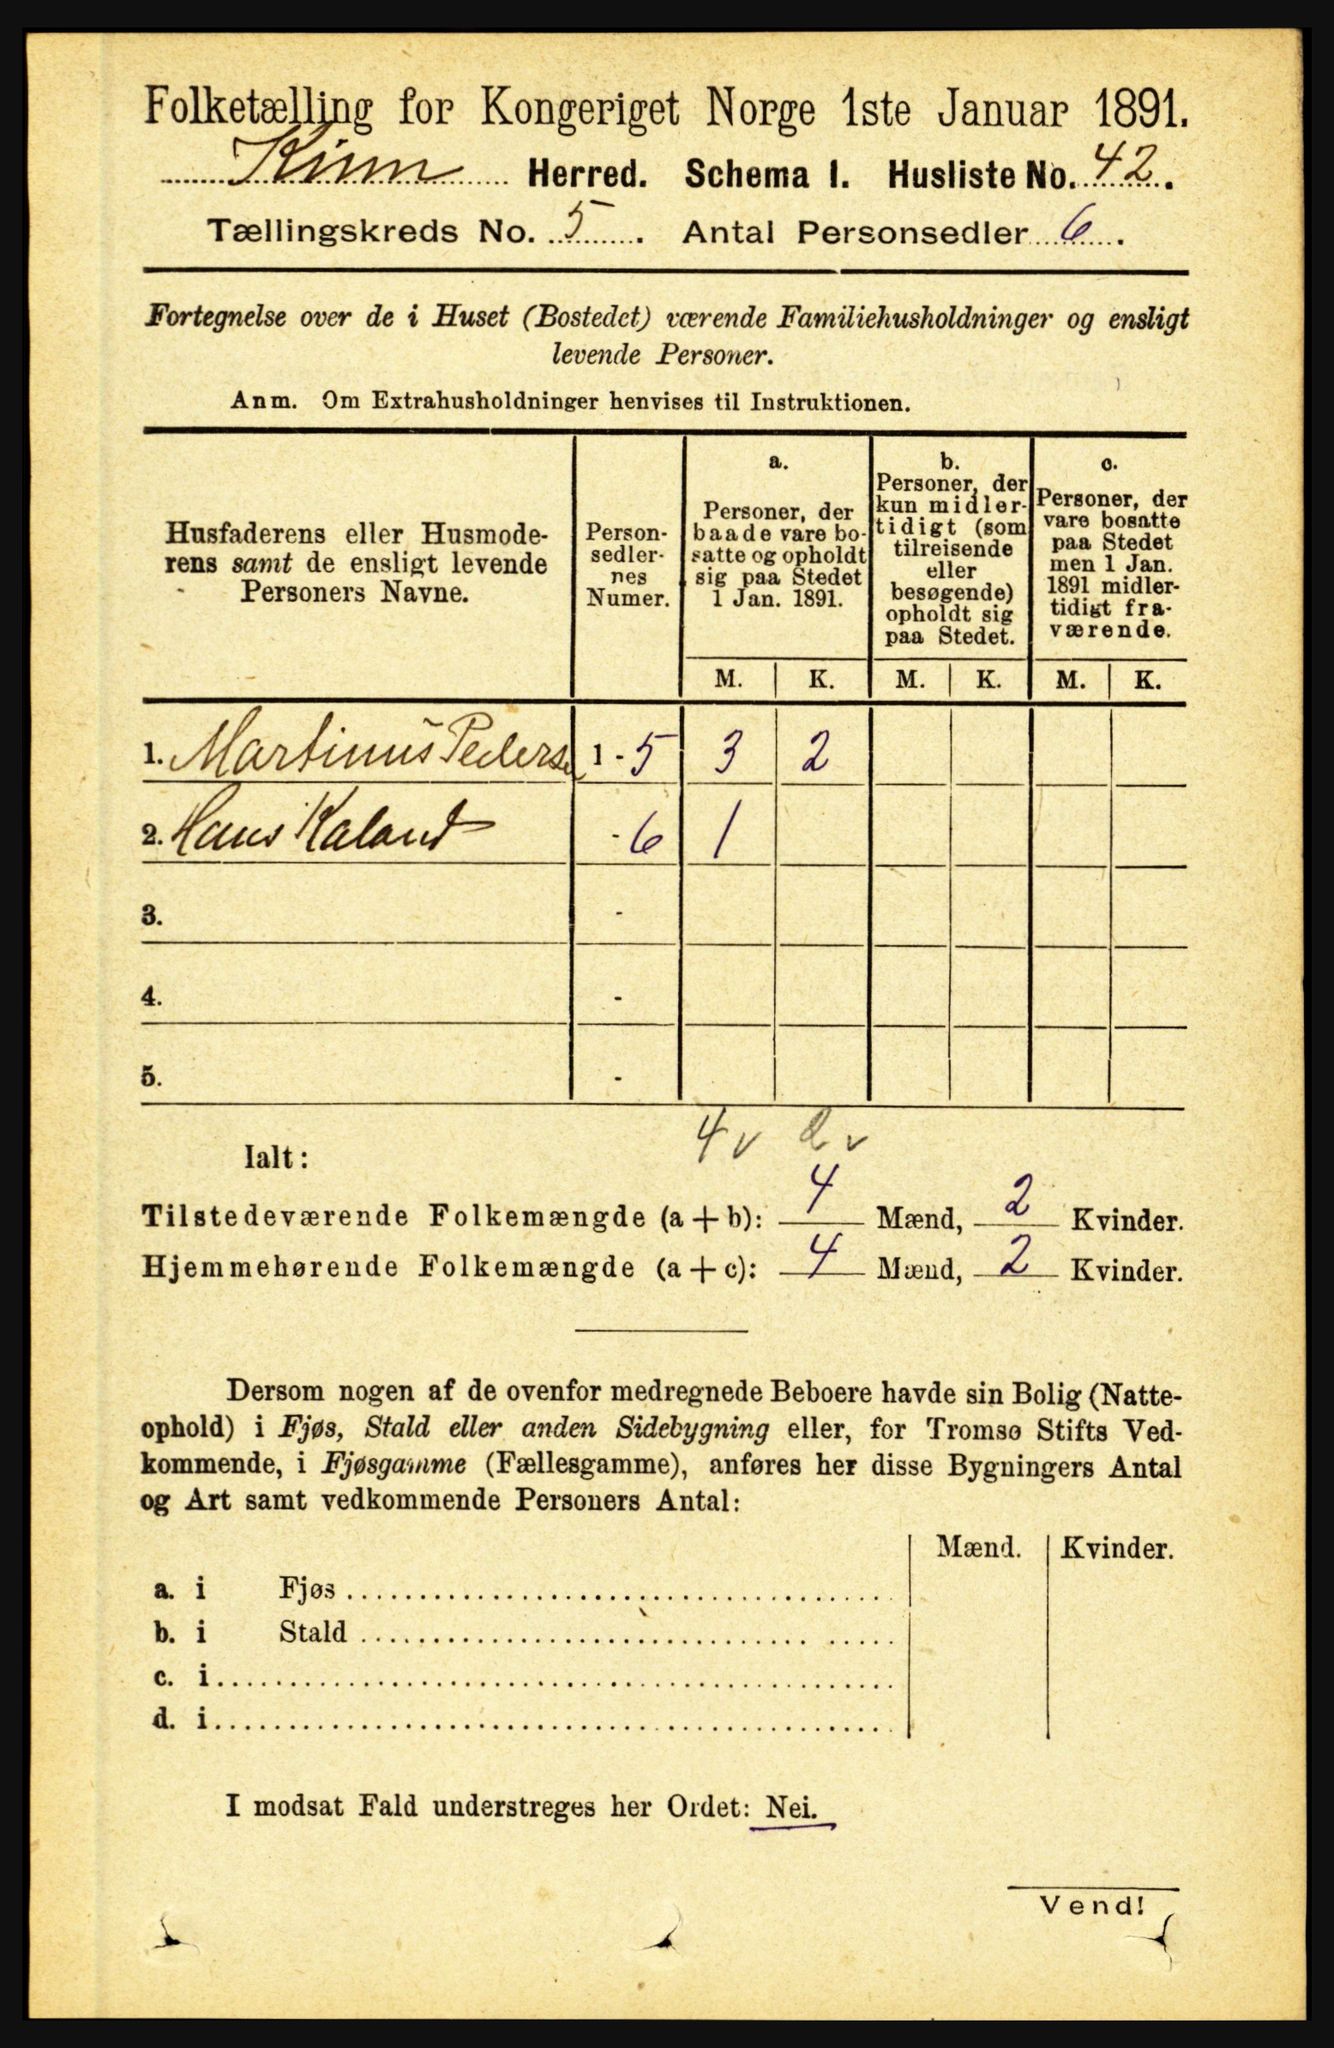 Folketælling for Kongeriget Norge 1ste Januar 1891.
Kinn Herred. Schema I. Husliste No. 42.
Tællingskreds No. 5. Antal Personsedler 6.
Fortegnelse over de i Huset (Bostedet) værende Familiehusholdninger og ensligt
levende Personer.
Anm. Om Extrahusholdninger henvises til Instruktionen.
Husfaderens eller Husmode-
rens samt de ensligt levende
Personers Navne.
Person-
sedler-
nes
Numer.
a.
Personer, der
baade vare bo-
satte og opholdt
sig paa Stedet
1 Jan. 1891.
b.
Personer, der
kun midler-
tidigt (som
tilreisende
eller
besøgende)
opholdt sig
paa Stedet.
c.
Personer, der
vare bosatte
paa Stedet
men 1 Jan.
1891 midler-
tidigt fra-
værende.
M. K. M. K. M. K.
1. Martinus Peders 1 - 5 3 2
2. Hans Kaland - 6 1
3. -
4. -
5. -
4 v 2 v
Ialt:
Tilstedeværende Folkemængde (a + b): 4 Mænd, 2 Kvinder.
Hjemmehørende Folkemængde (a + c): 4 Mænd, 2 Kvinder.
Dersom nogen af de ovenfor medregnede Beboere havde sin Bolig (Natte-
ophold) i Fjøs, Stald eller anden Sidebygning eller, for Tromsø Stifts Ved-
kommende, i Fjøsgamme (Fællesgamme), anføres her disse Bygningers Antal
og Art samt vedkommende Personers Antal:
Mænd. Kvinder.
a. i Fjøs
b. i Stald
c. i
d. i
I modsat Fald understreges her Ordet: Nei.
Vend!